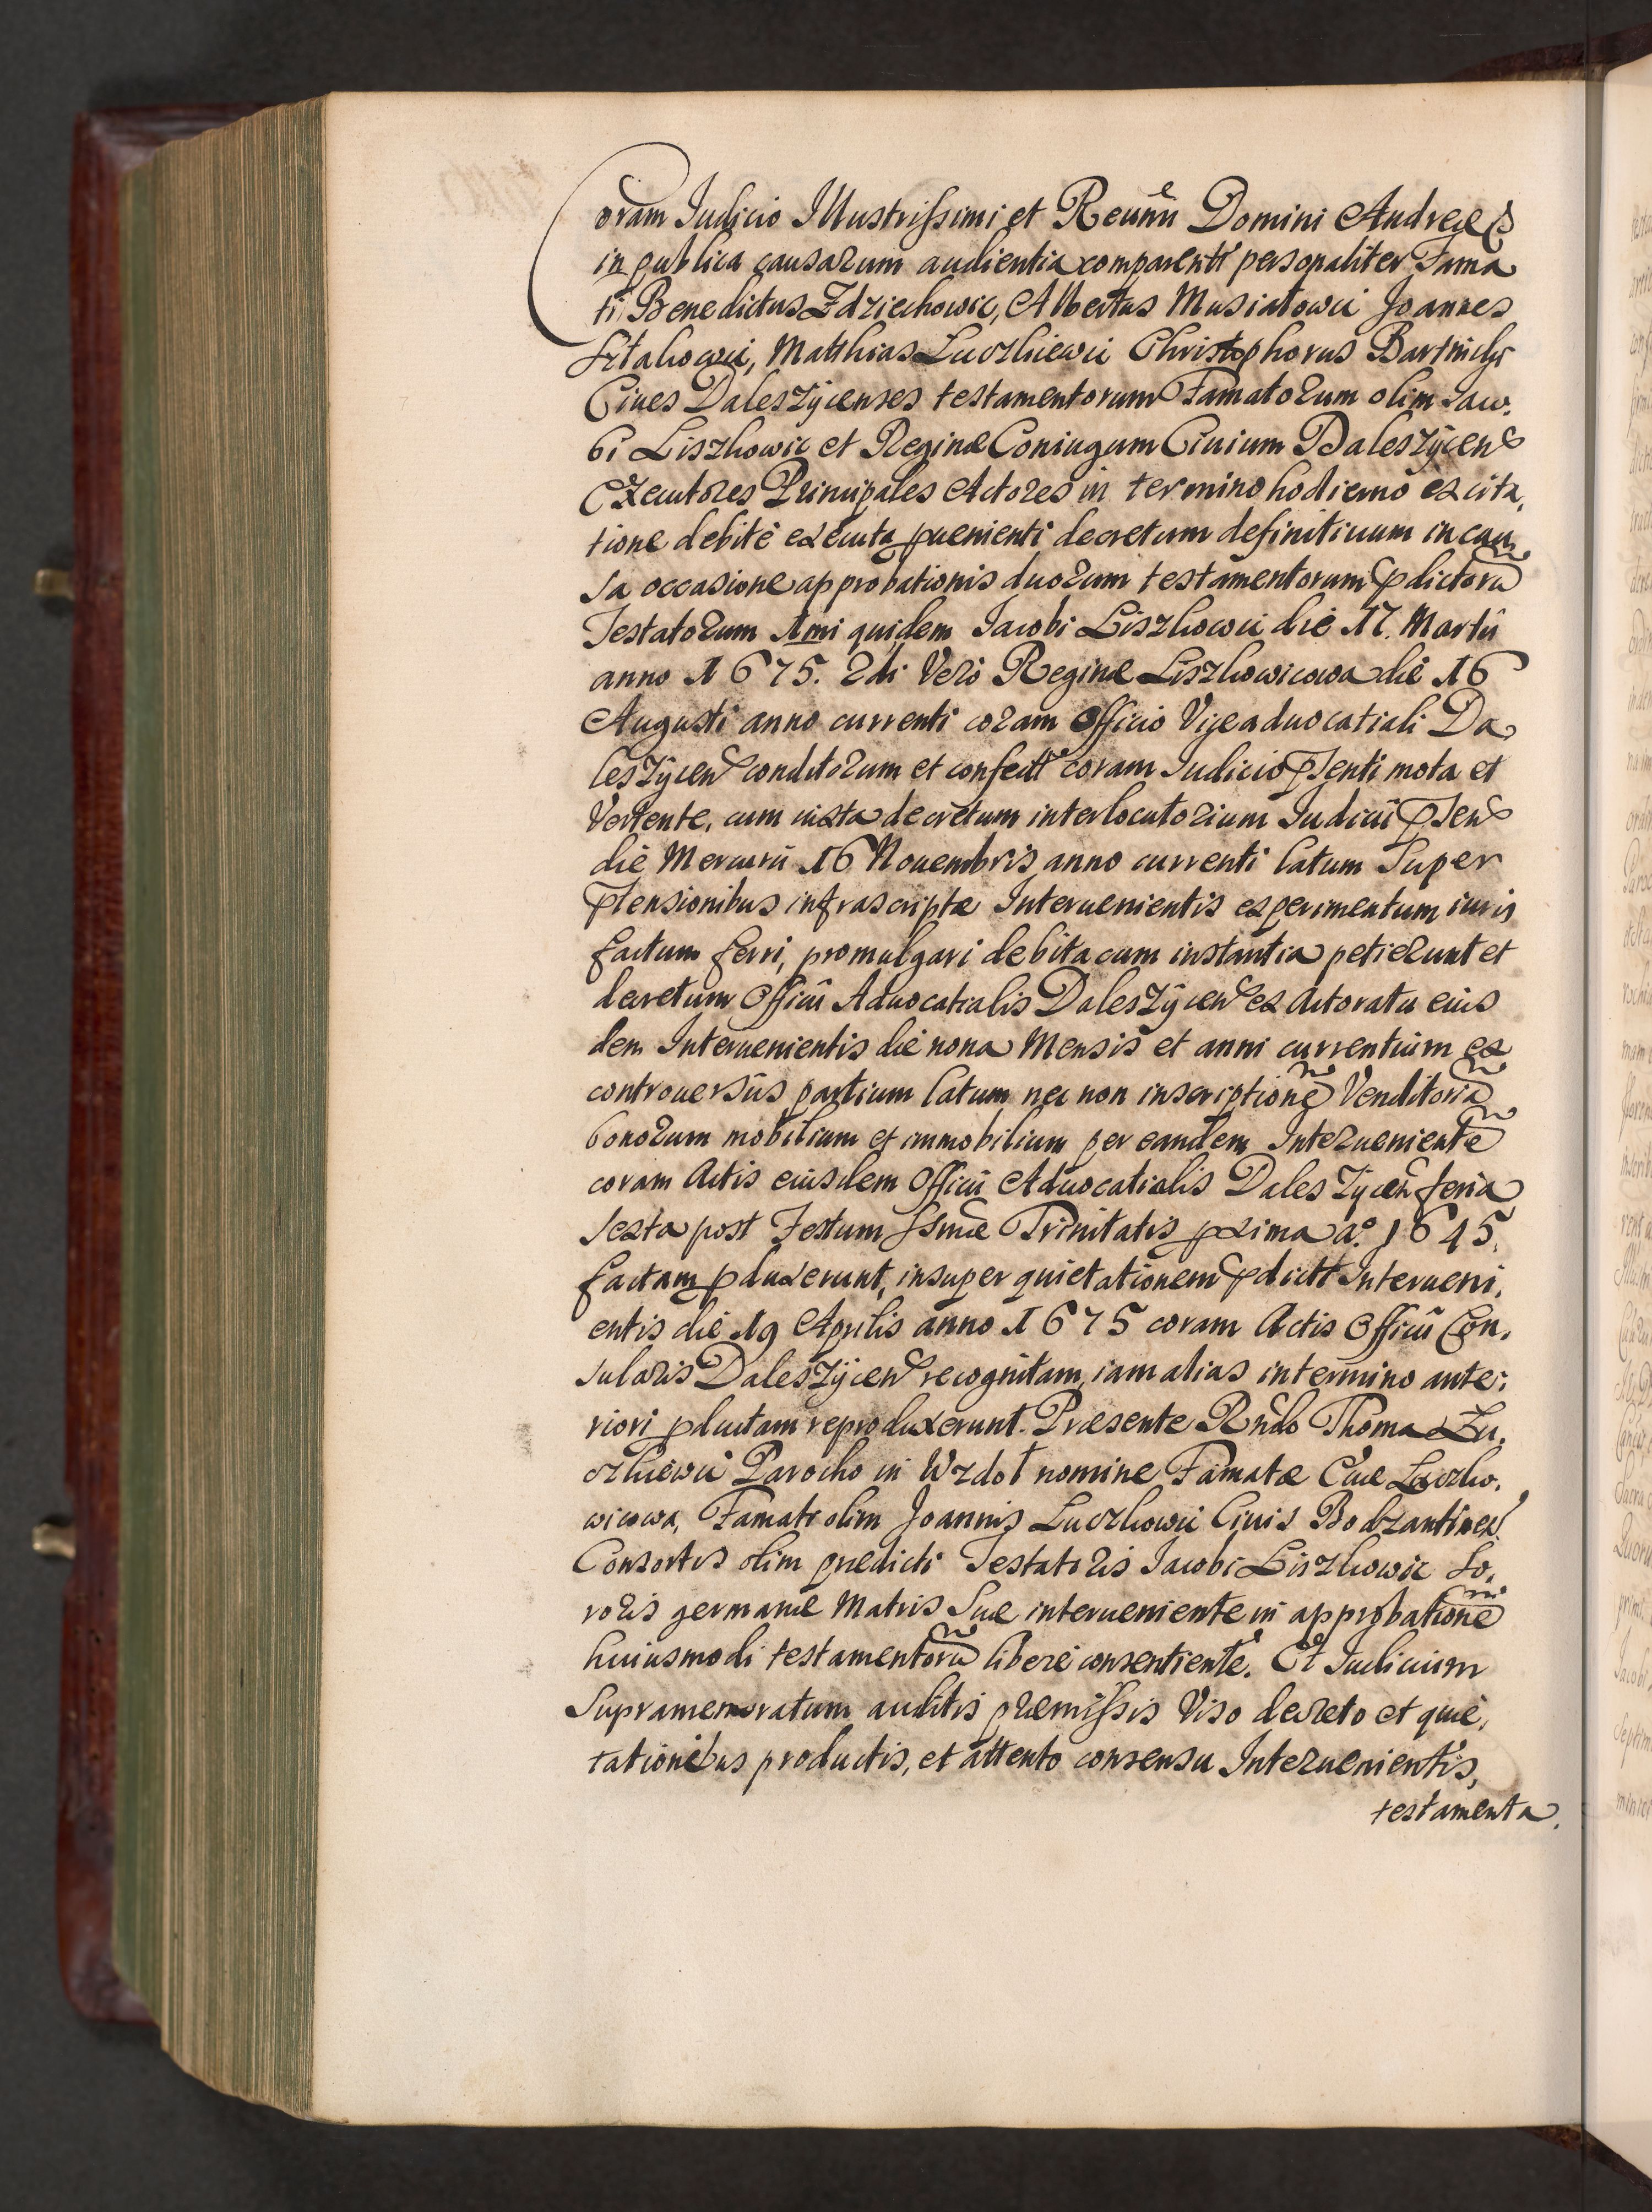 Coram Iudicio Illustrissimi et Reuñi Domini Andreæ
in publica causarum audientia comparentt personaliter Fama
ti Benedictus Zdziechowic, Albertus Musiałowic Joannes
Sitakowic, Matthias Luczkiewic Christophorus Bartnicky
Ciues Daleszÿcenses testamentorum Famatorum olim Iaco,
bi Liszkowic et Reginæ Coniugum Ciuium Daleszÿcen
Executores Principales Actores in termino hodierno ex cita,
tione debite executa puenienti decretum definitiuum in cau,
sa occasione approbationis duorum testamentorum pdictorũ
Testatorum 1mi quidem Iacobi Liszkowic die 17. Martÿ
anno 1675. 2di Vero Reginæ Liszkowicowa die 16
Augusti anno currenti coram Officio Viceaduocatiali Da,
leszÿcen conditorum et confectt coram Iudicio psenti mota et
Vertente, cum iuxta decretum interlocutorium Iudicii psen
die Mercurii 16 Nouembris anno currenti latum Super
ptensionibus infrascriptæ Interuenientis experimentum iuris
factum ferri, promulgari debita cum instantia petierunt et
decretum Officii Aduocatialis Daleszÿcen ex Actoratu eius
dem Interuenientis die nona Mensis et anni currentium ex
controuersiis partium latum nec non inscriptionẽ Venditoriã
bonorum mobilium et immobilium per eandem Interuenientẽ
coram Actis eiusdem Officii Aduocatialis Daleszÿcen feria
sexta post Festum Ssmæ Trinitatis pxima a° 1645.
factam pduxerunt, insuper quietationem pdictt Interueni,
entis die 19 Aprilis anno 1675 coram Actis Officii Con,
sularis Daleszÿcen recognitam, iam alias in termino ante,
riori pductam reproduxerunt. Præsente Rndo Thoma Lu,
czkiewic Parocho in Wzdoł nomine Famatæ Euæ Luczko,
wicowa, Famati olim Joannis Luczkowic Ciuis Bodzantinen
Consortis olim prædicti Testatoris Iacobi Liszkowic So,
roris germanæ Matris Suæ interueniente in approbationẽ
huiusmodi testamentorũ libere consentiente. Et Iudicium
Supramemoratum auditis præmissis Viso decreto et quie,
tationibus productis, et attento consensu Interuenientis,
testamenta.